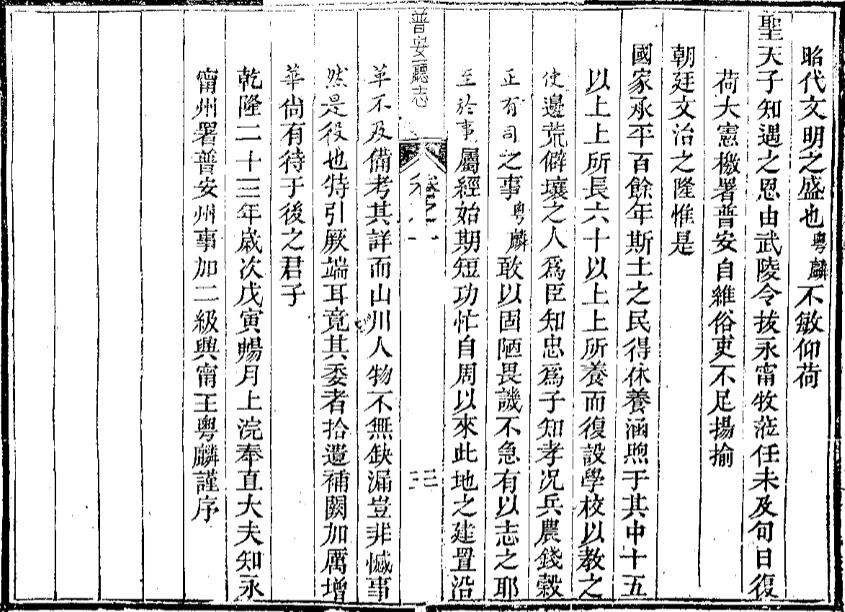 昭代文明之盛也粤麟不敏仰荷
聖天子知遇之恩由武陵令拔永甯牧蒞任未及旬日復
荷大憲檄署普安自維俗吏不足揚揄
朝廷文治之隆惟是
國家承平百餘年斯土之民得休養涵煦于其中十五
以上上所長六十以上上所養而復設學校以教之
使邊荒僻壤之人爲臣知忠爲子知孝况兵農錢穀
正有司之事粤麟敢以固陋畏譏不急有以志之耶
至於事屬經始期短功忙自周以來此地之建置沿
普安廳志
卷之
三
革不及備考其詳而山川人物不無缺漏豈非憾事
然是役也特引厥端耳竟其委者拾遺補闕加厲增
華尚有待于後之君子
乾隆二十三年歲次戊寅暢月上浣奉直大夫知永
甯州署普安州事加二級興甯王粤麟謹序